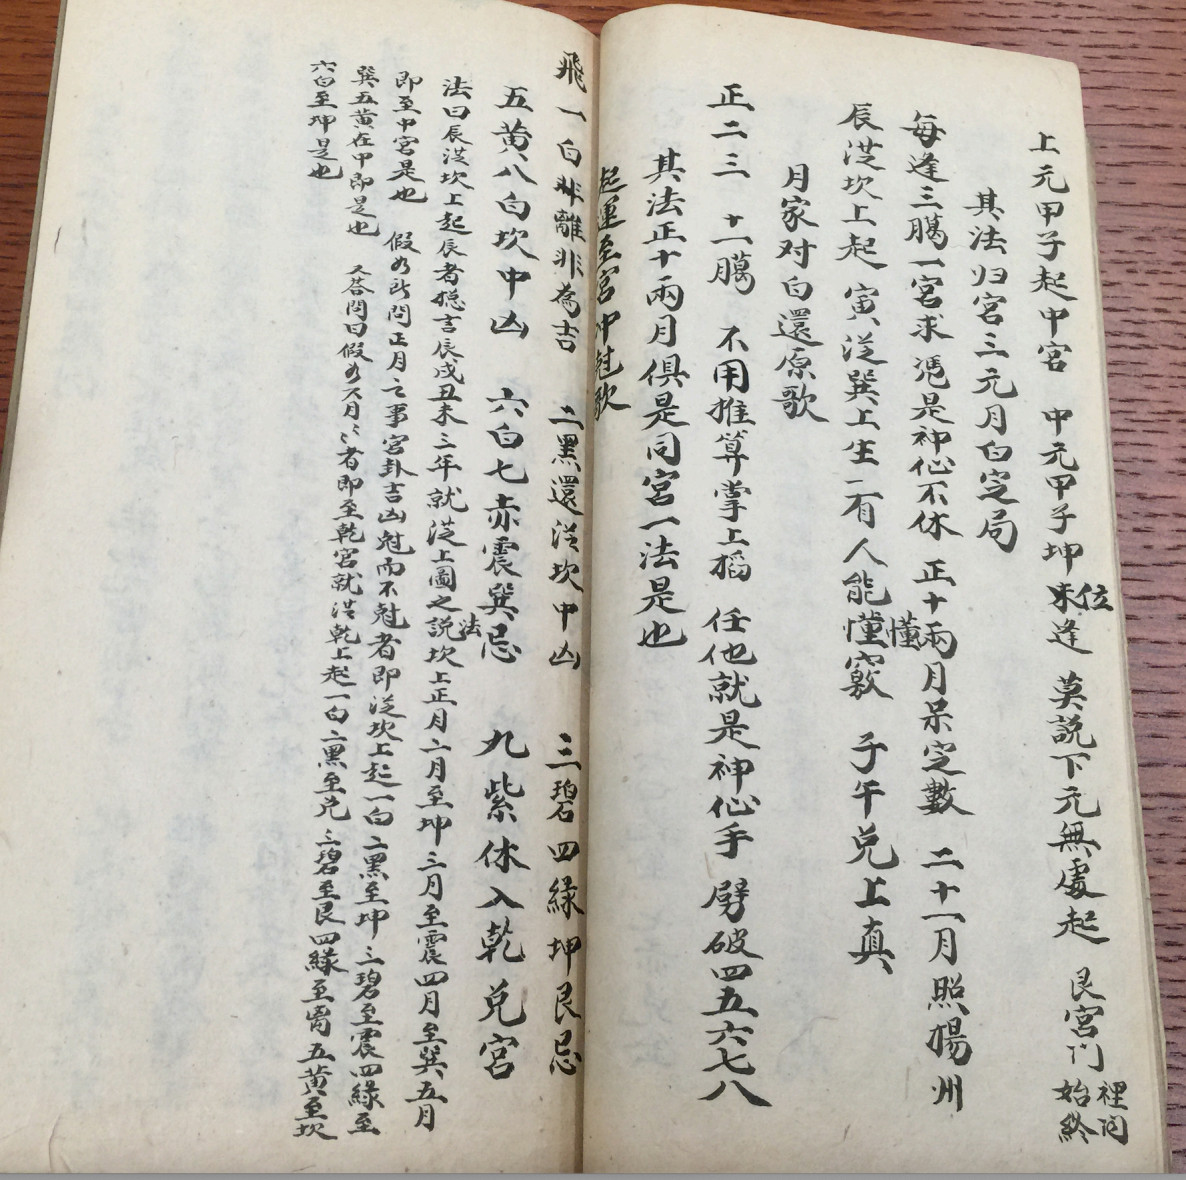 上元甲子起中宮 中元甲子坤位未逢 莫説下元無處起 艮宮门裡问始終
其法归宮三元月白定局
每逢三臈一宮求 憑是神仙不休 正十兩月呆定數 二十一月照揚州
辰從坎上起 寅從巽上生 有人能懂懂竅 子午兌上真
月家对白還原歌
正二三 十一臈 不用推算掌上搯 任他就是神仙手 劈破四五六七八
其法正十兩月俱是同宮一法是也
起運至宮中尅歌
飛一白非離非為吉 二黑還從坎中凶 三碧四緑坤艮忌
五黄八白坎中凶 六白七赤震巽忌 九紫休入乾兌宮
法曰辰從坎上起辰者總言辰戌丑未三年就從上圖之説法坎上正月二月至坤三月至震四月至巽五月
即至中宮是也 假如所問正月之事宮卦吉凶尅而不尅者即從坎上起一白二黑至坤三碧至震四緑至
巽五黄在中即是也 又答問曰假如六月之者即至乾宮就從乾上起一白二黑至兌三碧至艮四緑至离五黄至坎
六白至坤是也